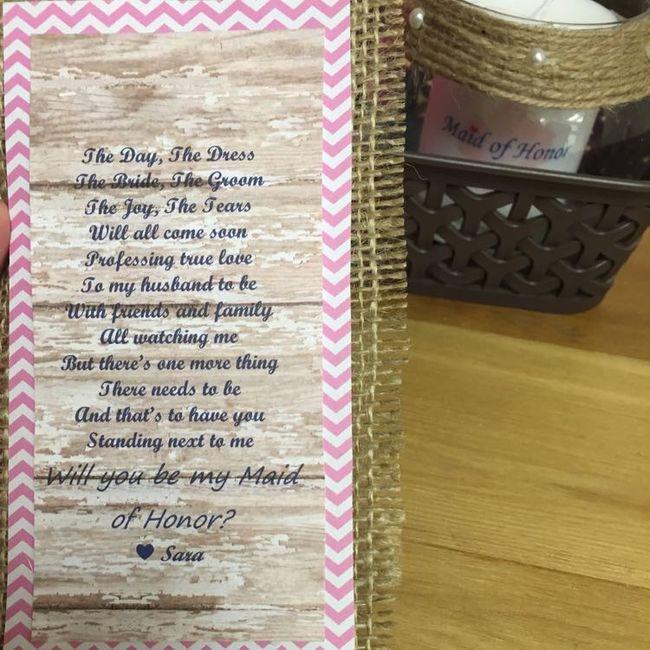 The Day, The Dress
The Bride, The Groom
The Joy, The Tears
Will all come soon
Professing true love
To my husband to be
With friends and family
All watching me
But there's one more thing
There needs to be
And that's to have you
Standing next to me
Will you be my Maid
of Honor?
♥ Sara
Maid of Honor